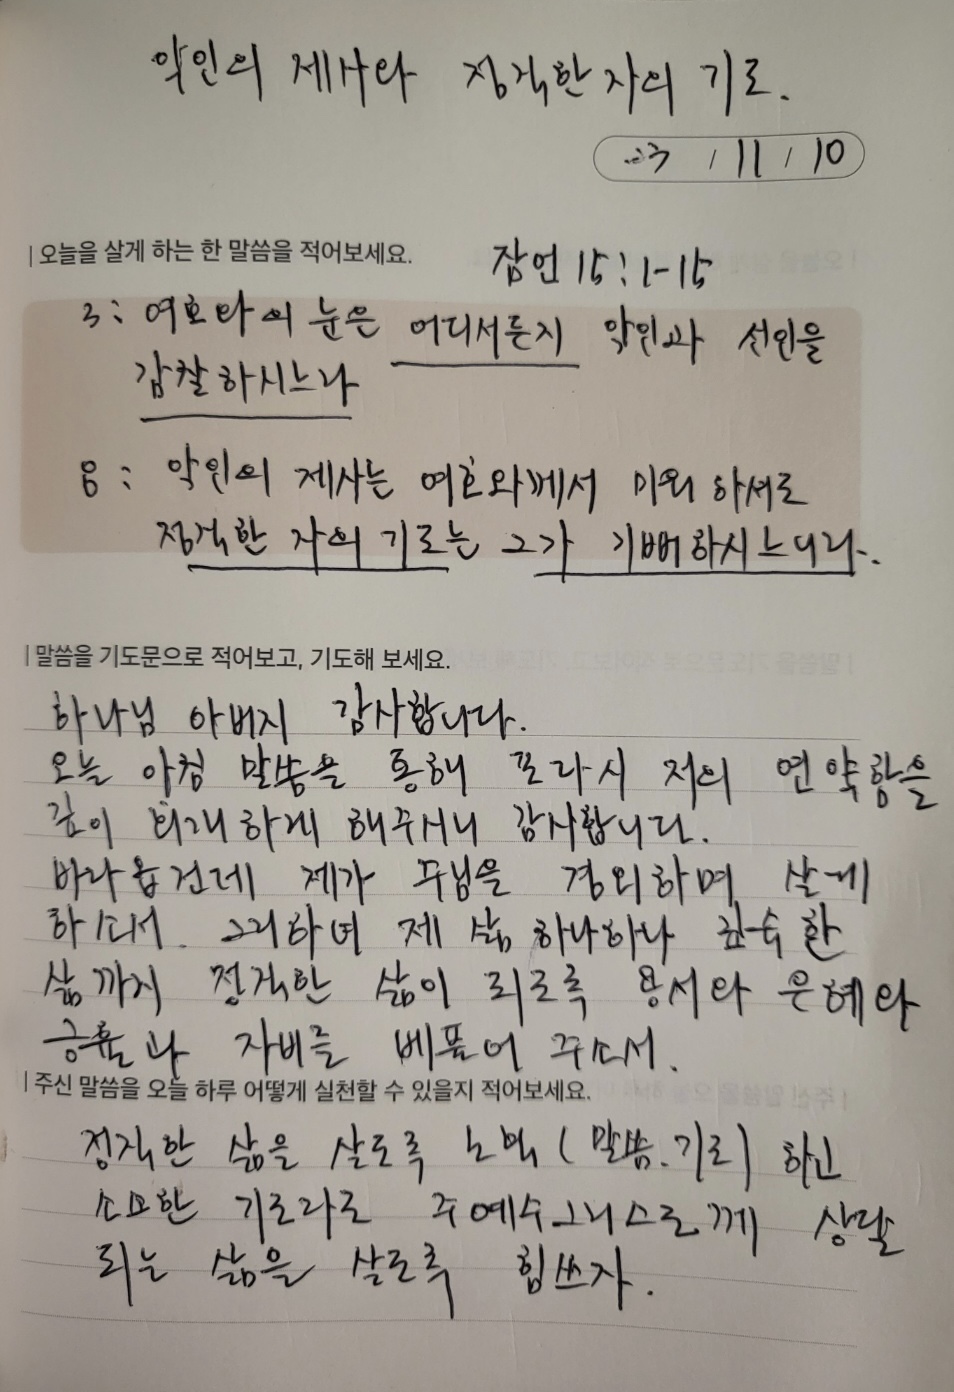 악인의 제사와 정직한 자의 기도.
23 / 11 / 10
| 오늘을 살게 하는 한 말씀을 적어보세요.
잠언 15:1-15
3: 여호와의 눈은 어디서든지 악인과 선인을
감찰하시느니라
8: 악인의 제사는 여호와께서 미워 하셔도
정직한 자의 기도는 그가 기뻐하시느니라.
| 말씀을 기도문으로 적어보고, 기도해 보세요.
하나님 아버지 감사합니다.
오늘 아침 말씀을 통해 또다시 저의 연약함을
깊이 회개하게 해주시니 감사합니다.
바라옵건데 제가 주님을 경외하며 살게
하소서. 그리하여 제 삶 하나하나 깊숙한
삶까지 정직한 삶이 되도록 용서와 은혜와
긍휼과 자비를 베풀어 주소서.
| 주신 말씀을 오늘 하루 어떻게 실천할 수 있을지 적어보세요.
정직한 삶을 살도록 노력 (말씀.기도) 하고
소소한 기도라도 주예수그리스도께 상달
되는 삶을 살도록 힘쓰자.